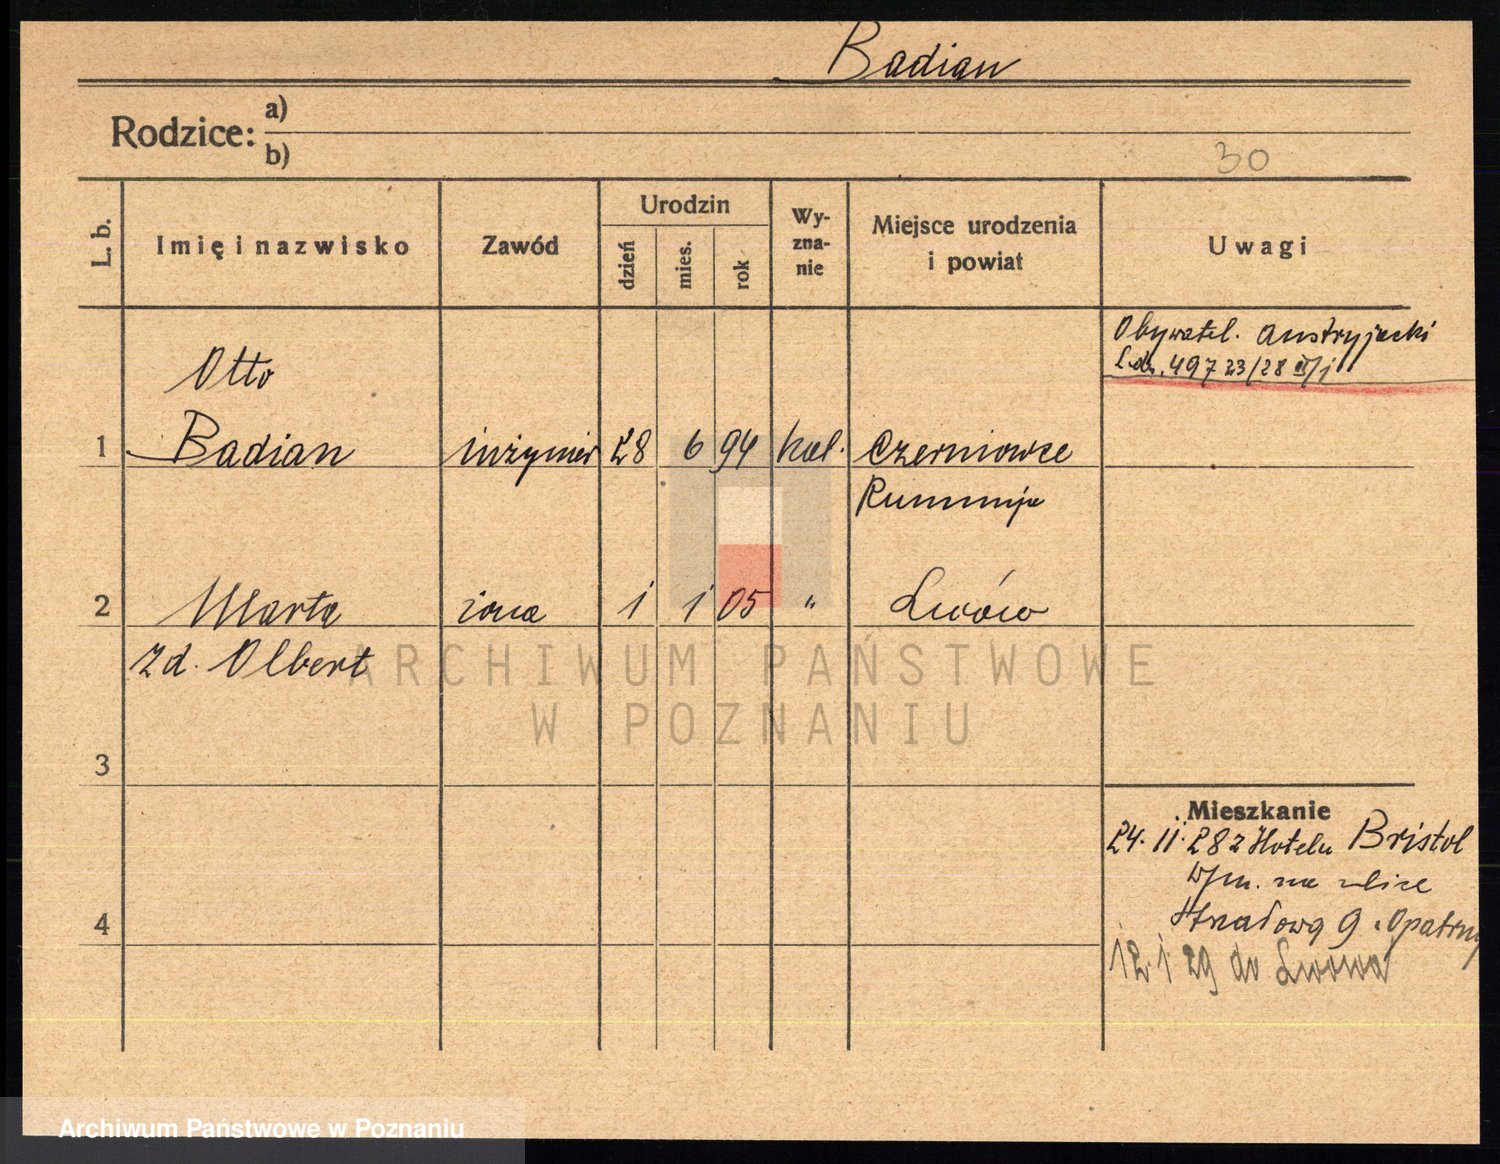 Badian
Rodzice: a)
b)
30
L. b.
Imię i nazwisko
Zawód
Urodzin
dzień
mies.
rok
Wy-
zna-
nie
Miejsce urodzenia
i powiat
Uwagi
Obywatel. austryjacki
L.dz. 497 23/28
Otto
1 Badian inżynier 28 6 94 kat. Czerniowce
Rumunja
2 Marta żona 1 1 05 " Lwów
zd. Olbert
ARCHIWUM PAŃSTWOWE
W POZNANIU
3
Mieszkanie
24. 11. 28 z Hotelu Bristol
wpr. na ulice
9 Opatrny
4
12. 1 29 do Lwowa
Archiwum Państwowe w Poznaniu